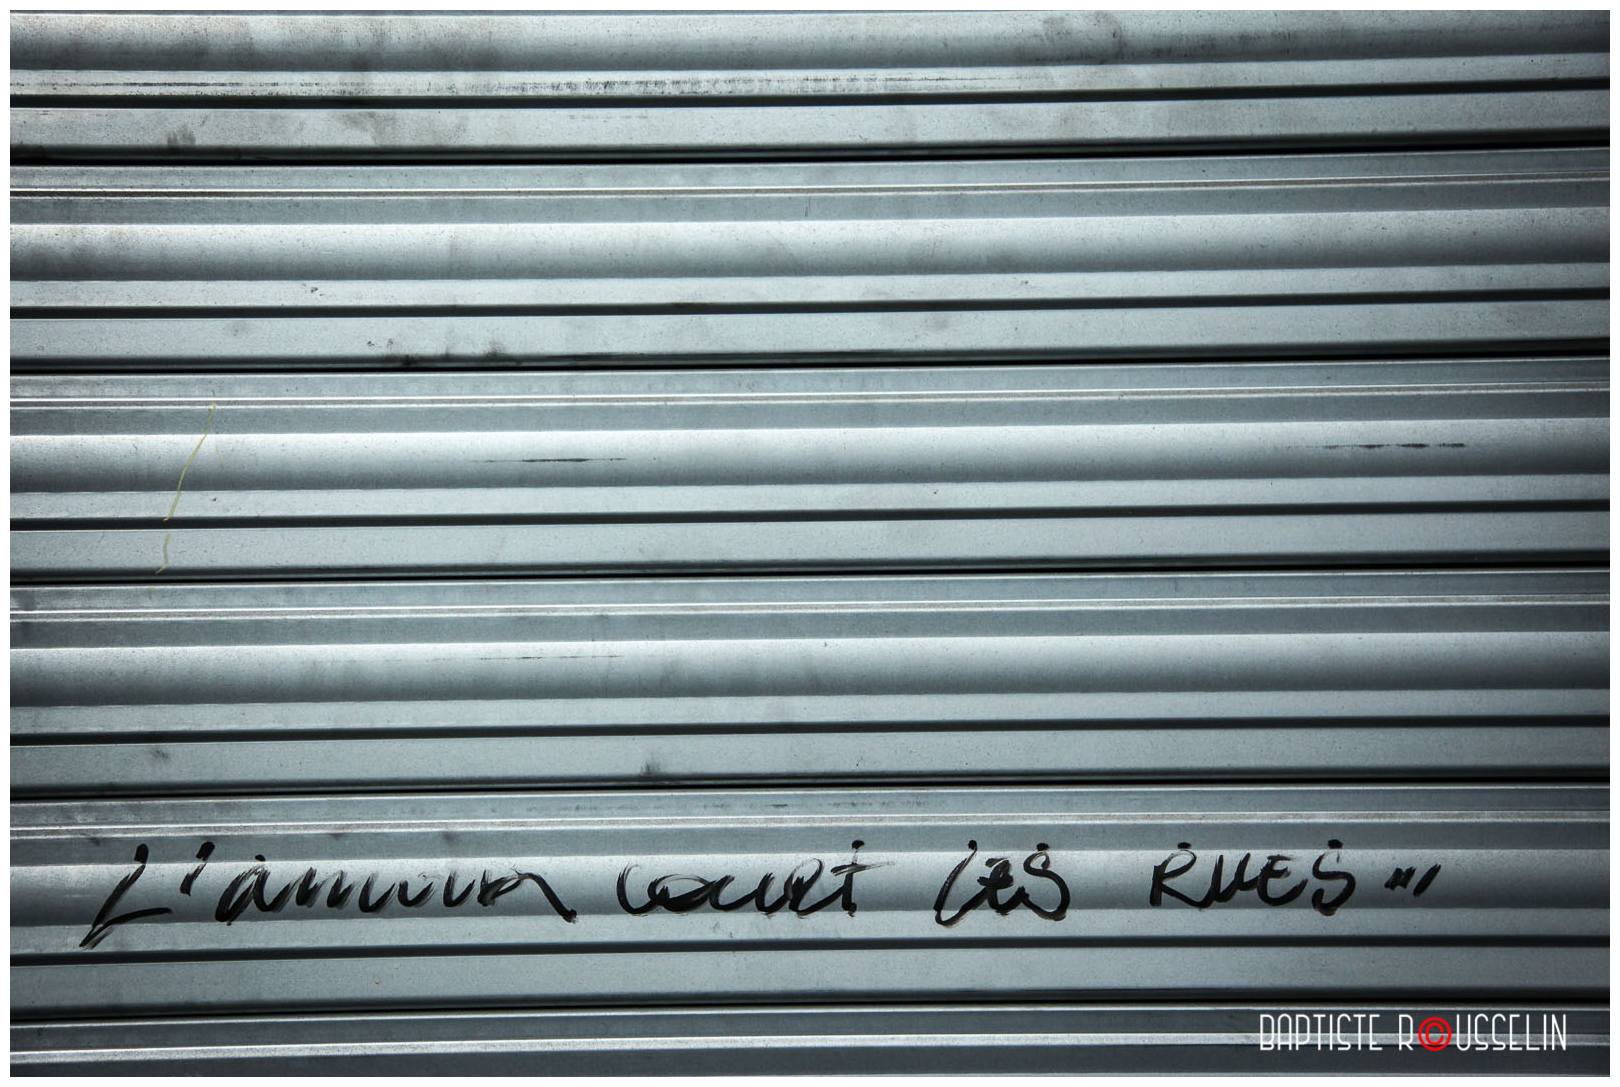 L'amour court les RUES...
BAPTISTE R©USSELIN